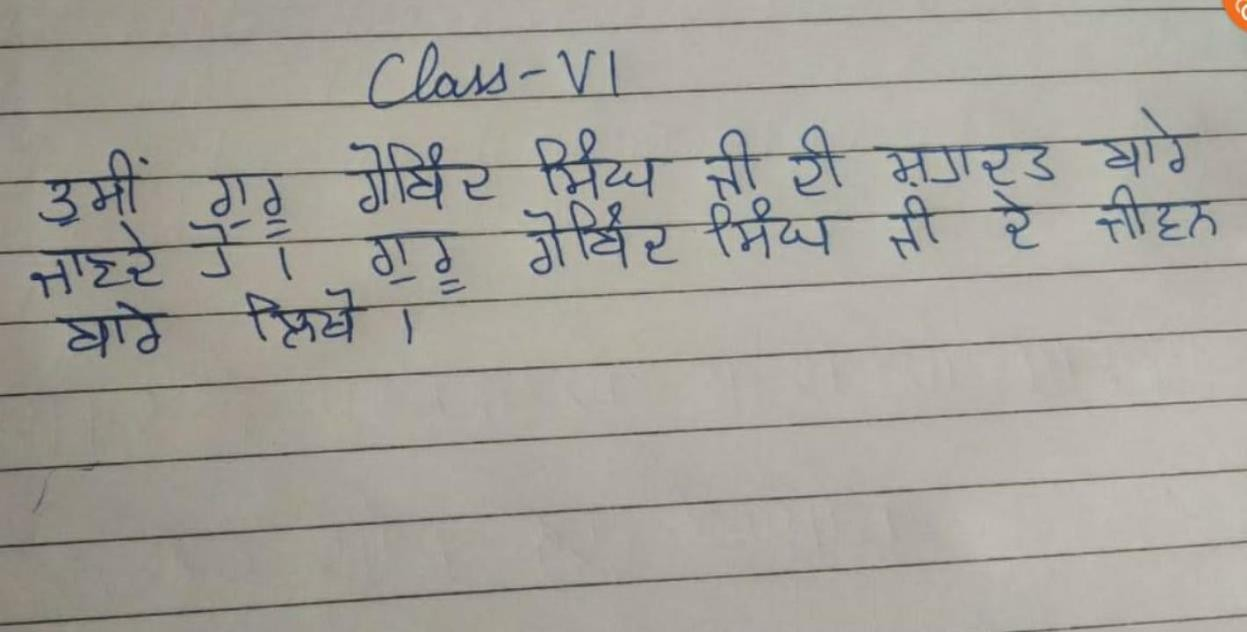 Class-VI
ਤੁਸੀਂ ਗੁਰੂ ਗੋਬਿੰਦ ਸਿੰਘ ਜੀ ਦੀ ਸ਼ਹਾਦਤ ਬਾਰੇ
ਜਾਣਦੇ ਹੋ । ਗੁਰੂ ਗੋਬਿੰਦ ਸਿੰਘ ਜੀ ਦੇ ਜੀਵਨ
ਬਾਰੇ ਲਿਖੋ ।